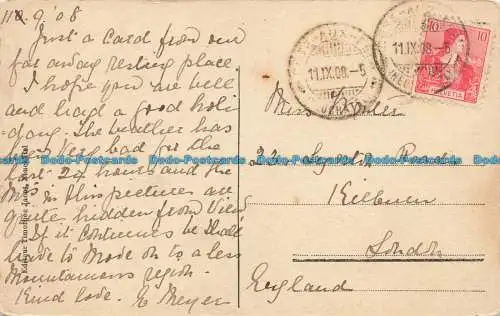 11.9.'08
Just a card from our
far away resting place
I hope you are well
and had a good holi-
day. The weather has
been very bad for the
last 24 hours and the
Mts in this pictures are
quite hidden from View
If it continues we shall
have to move on to a less
Mountainous region.
Kind love. E Meyer
Miss
22 Road
Kilburn
London
England
11.IX.08.-5
11.IX.08.-5
10 10
HELVETIA
Dodo-Postcards Dodo-Postcards Dodo-Postcards Dodo-Postcards